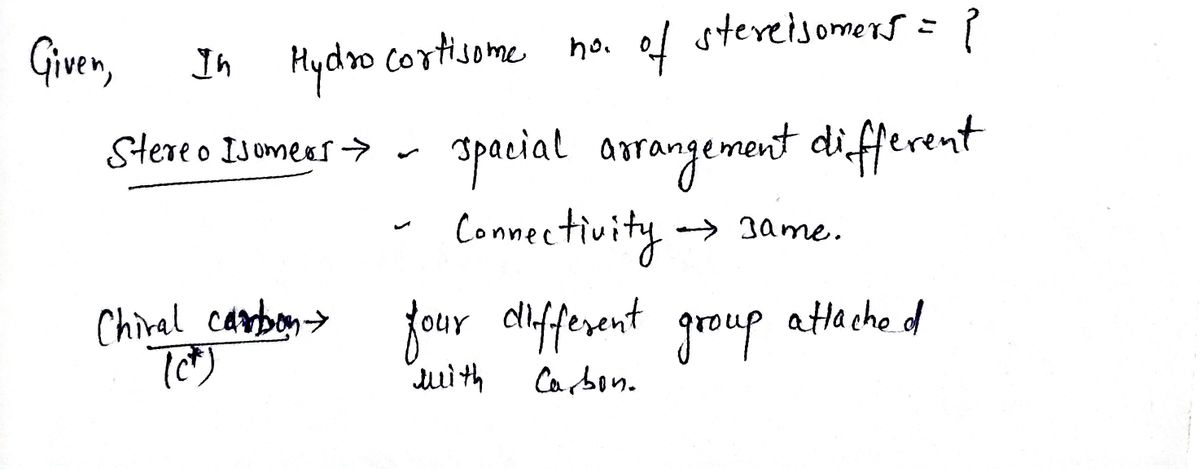 Given, In Hydrocortisome no. of stereisomers = ?
Stereo Isomers → - spacial arrangement different
- Connectivity → same.
Chiral carbon → four different group attached
(C*) with Carbon.